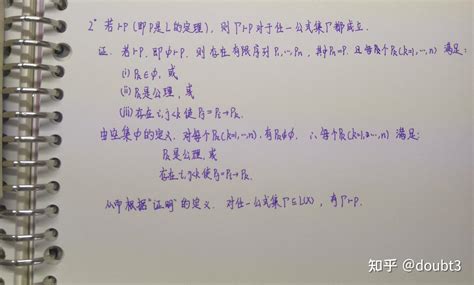 2° 若⊢P (即P是L的定理), 则 Γ⊢P 对于任一公式集Γ都成立.
证. 若⊢P, 即∅⊢P, 则存在有限序列 P₁,…,Pₙ, 其中Pₙ=P. 且每个Pₖ(k=1,…,n) 满足:
(i) Pₖ∈∅, 或
(ii) Pₖ是公理, 或
(iii) 存在 i,j<k 使 Pj=Pi→Pₖ.
由空集中的定义, 对每个Pₖ(k=1,…,n), 有Pₖ∉∅, ∴每个Pₖ(k=1,2…,n) 满足:
Pₖ是公理, 或
存在i,j<k使Pj=Pi→Pₖ.
从而根据“证明”的定义, 对任一公式集Γ⊆L(X), 有Γ⊢P.
知乎 @doubt3